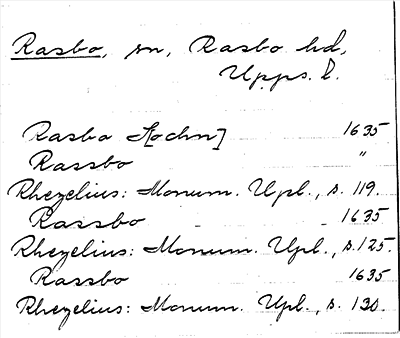 Rasbo, sn, Rasbo hd,
Upps. l.
Rasba S[ochn] 1635
Rassbo "
Rhezelius: Monum. Upl., s. 119.
Rassbo 1635
Rhezelius: Monum. Upl., s. 125.
Rassbo 1635
Rhezelius: Monum. Upl., s. 130.